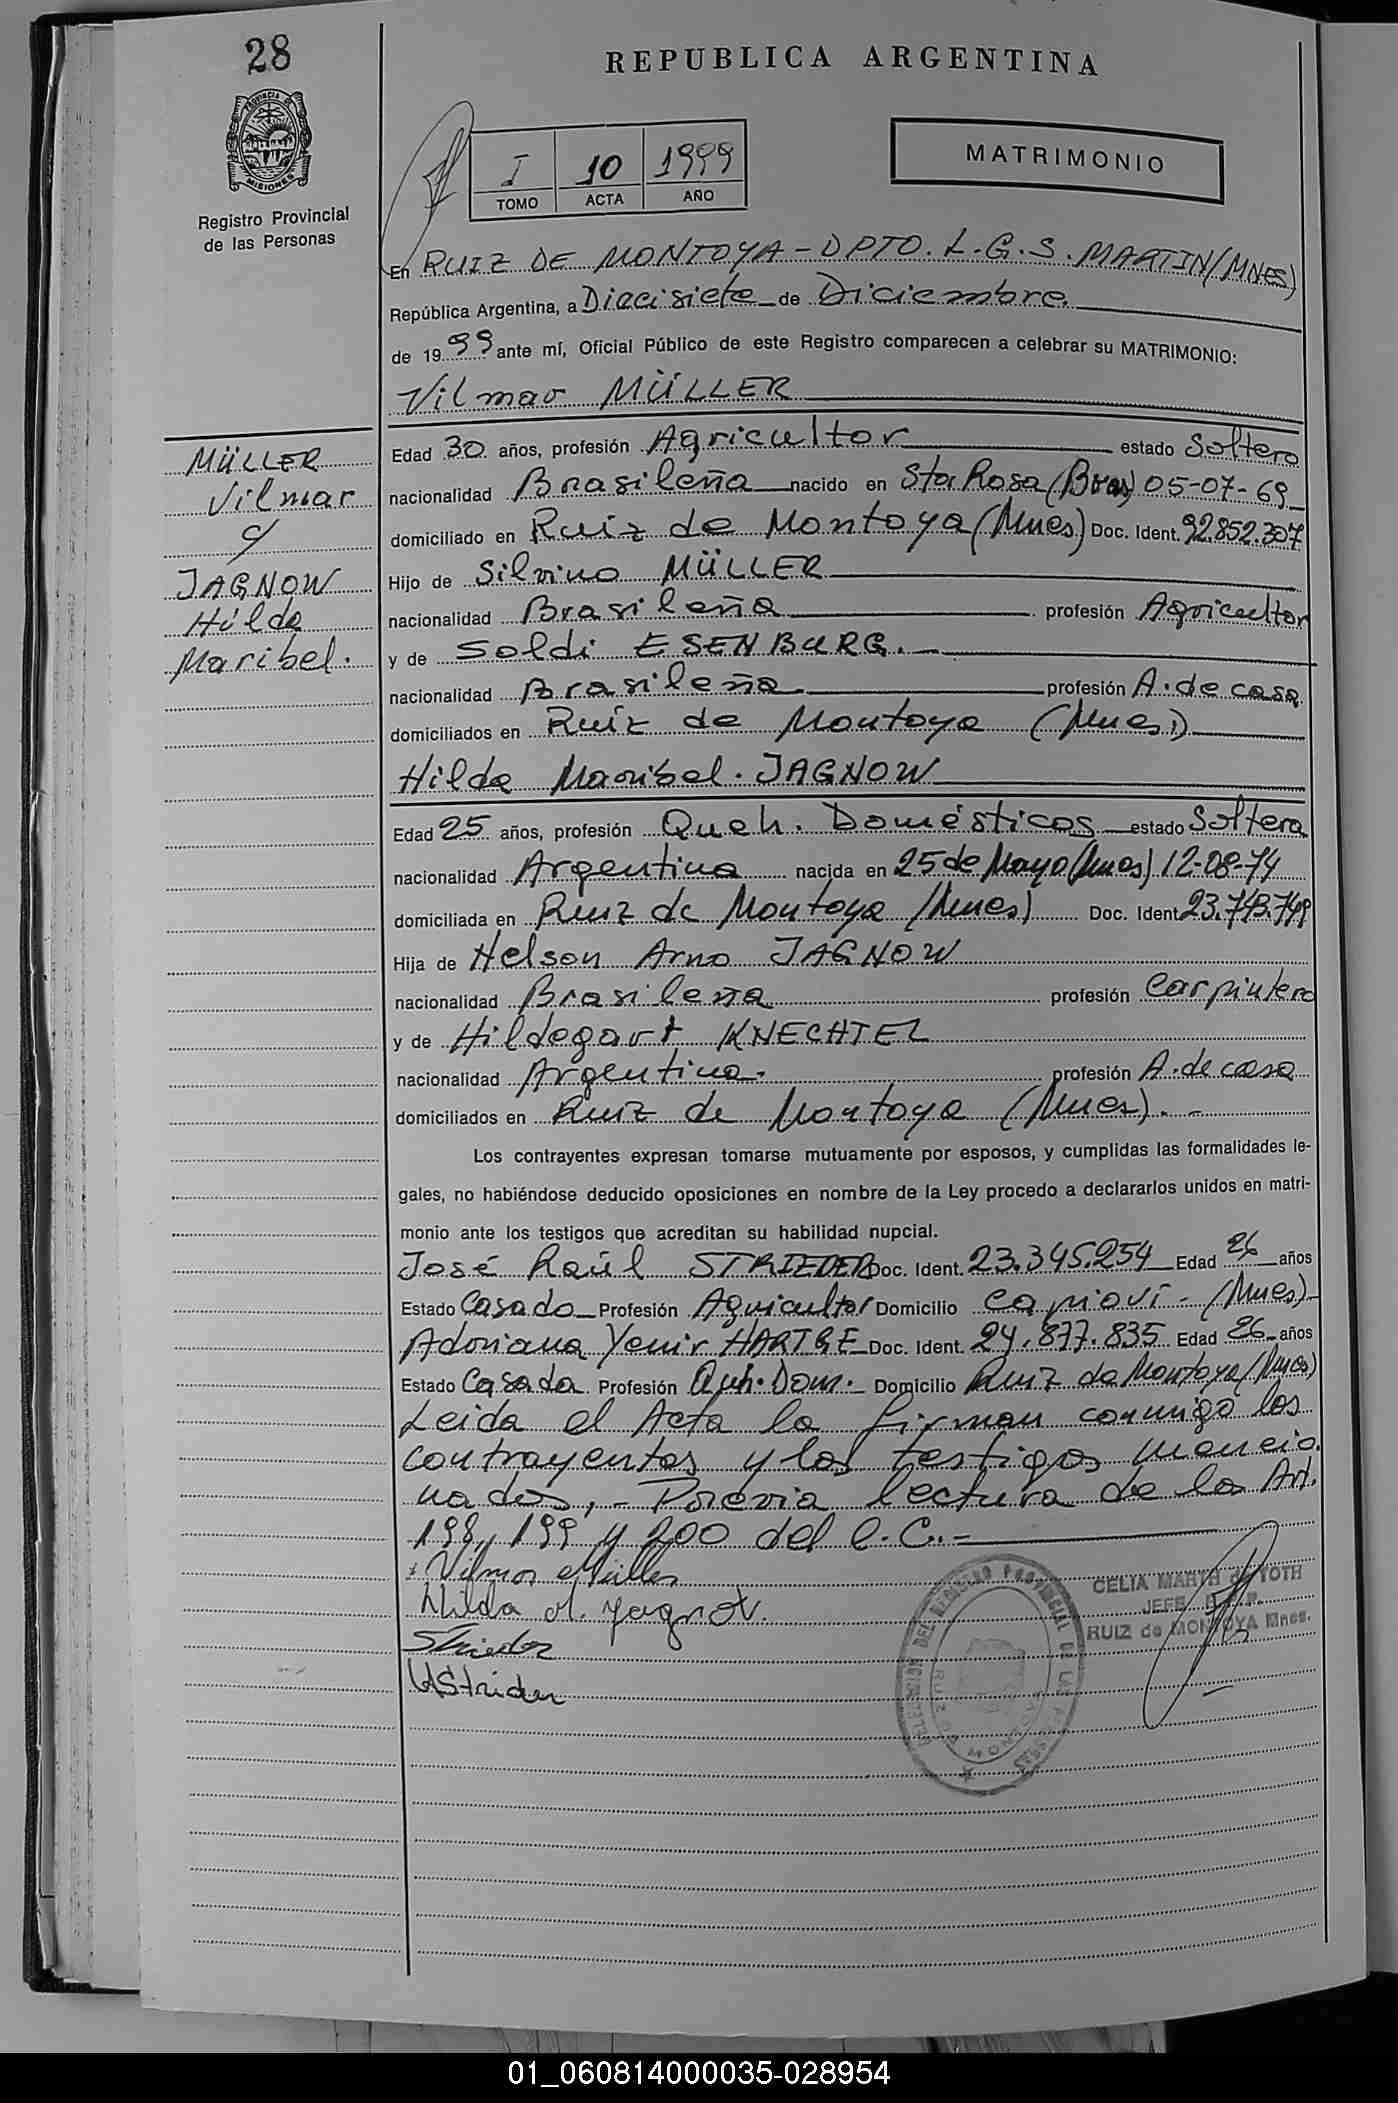 28
REPUBLICA ARGENTINA
PROVINCIA DE
MISIONES
Registro Provincial
de las Personas
I 10 1999
TOMO ACTA AÑO
MATRIMONIO
En RUIZ DE MONTOYA - DPTO. L.G.S. MARTIN/(MNES)
República Argentina, a Diecisiete de Diciembre
de 1999 ante mí, Oficial Público de este Registro comparecen a celebrar su MATRIMONIO:
Vilmar MÜLLER
MÜLLER
Vilmar
c/
JAGNOW
Hilda
Maribel.
Edad 30 años, profesión Agricultor estado Soltero
nacionalidad Brasileña nacido en Sta Rosa (Bras) 05-07-69
domiciliado en Ruiz de Montoya (Mnes) Doc. Ident. 92.852.307
Hijo de Silvino MÜLLER
nacionalidad Brasileña profesión Agricultor
y de Soldi ESENBURG.
nacionalidad Brasileña profesión A. de casa
domiciliados en Ruiz de Montoya (Mnes)
Hilda Maribel. JAGNOW
Edad 25 años, profesión Queh. Domésticos estado Soltera
nacionalidad Argentina nacida en 25 de Mayo (Mnes) 12-08-74
domiciliada en Ruiz de Montoya (Mnes) Doc. Ident 23.743.749
Hija de Helson Arno JAGNOW
nacionalidad Brasileña profesión Carpintero
y de Hildegart KNECHTEL
nacionalidad Argentina. profesión A. de casa
domiciliados en Ruiz de Montoya (Mnes). -
Los contrayentes expresan tomarse mutuamente por esposos, y cumplidas las formalidades le-
gales, no habiéndose deducido oposiciones en nombre de la Ley procedo a declararlos unidos en matri-
monio ante los testigos que acreditan su habilidad nupcial.
José Raúl STRIEDER Doc. Ident. 23.345.254 Edad 26 años
Estado Casado Profesión Agricultor Domicilio Capioví - (Mnes)
Adriana Yenir HARTGE Doc. Ident. 24.877.835 Edad 26 años
Estado Casada Profesión Queh. Dom. Domicilio Ruiz de Montoya (Mnes)
Leida el Acta la firman conmigo los
contrayentes y los testigos mencio
nados, - Previa lectura de los Art.
198, 199 y 200 del C.C. -
Vilmar Müller
Hilda M. Jagnow.
Strieder
CELIA MARTA de TOTH
JEFE
RUIZ de MONTOYA Mnes.
DELEGACION DEL REGISTRO PROVINCIAL DE LAS PERSONAS
RUIZ DE MONTOYA
01_060814000035-028954